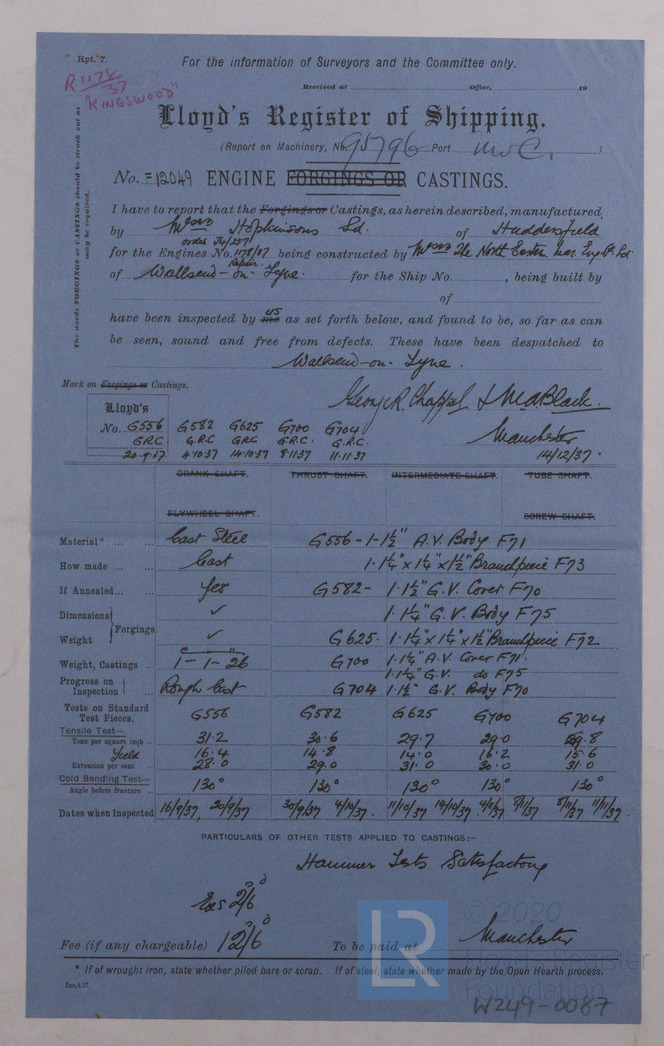 Rpt. 7.
For the information of Surveyors and the Committee only.
R 1178/37
"KINGSWOOD"
Received at Office, 19
Lloyd's Register of Shipping.
(Report on Machinery, No. 95796 Port NWC. )
No. F12049 ENGINE FORGINGS OR CASTINGS.
The words FORGINGS or CASTINGS should be struck out as may be required.
I have to report that the Forgings or Castings, as herein described, manufactured,
by Messrs Hopkinsons Ld. of Huddersfield
order
for the Engines No. 1178/37 being constructed by Messrs The North Eastern Mar Eng Co Ld
Repair
of Wallsend-on-Tyne for the Ship No. , being built by
of
have been inspected by me us as set forth below, and found to be, so far as can
be seen, sound and free from defects. These have been despatched to
Wallsend-on-Tyne.
Mark on Forgings or Castings.
Geo. R. Chappel & M A Black.
Manchester
14/12/37.
Lloyd's
No. G556 G582 G625 G700 G704
G.R.C. G.R.C G.R.C G.R.C. G.R.C.
20-9-37 4-10-37 14-10-37 8-11-37 11-11-37
CRANK SHAFT. THRUST SHAFT. INTERMEDIATE SHAFT. TUBE SHAFT.
FLYWHEEL SHAFT. SCREW SHAFT.
Material* Cast Steel G556-1-1½" A.V. Body F71
How made Cast 1·1¼" x 1¼" x 1½" Branchpiece F73
If Annealed Yes G582- 1·1½" G.V. Cover F70
Dimensions ✓ 1·1¼" G.V. Body F75
Forgings
Weight ✓ G625- 1·1¼" x 1¼" x 1½" Branchpiece F72
Weight, Castings 1-1-26 G700 1·1¼" A.V. Cover F71.
1·1¼" G.V. do F75
Progress on Inspection Rough Cast G704 1·1½" G.V. Body F70
Tests on Standard Test Pieces. G556 G582 G625 G700 G704
Tensile Test—
Tons per square inch 31.2 30.6 29.7 29.0 29.8
Yield 16.4 14.8 14.0 16.2 15.6
Extension per cent 28.0 29.0 31.0 30.0 31.0
Cold Bending Test—
Angle before fracture 130° 130° 130° 130° 130°
Dates when Inspected 16/9/37, 20/9/37 30/9/37 4/10/37. 11/10/37 14/10/37 4/11/37 8/11/37 8/11/37 11/11/37
PARTICULARS OF OTHER TESTS APPLIED TO CASTINGS:—
Hammer Tests Satisfactory
Exs 2/6
Fee (if any chargeable) 12/6 To be paid at Manchester
* If of wrought iron, state whether piled bars or scrap. If of steel, state whether made by the Open Hearth process.
5m,4.37.
LR
© 2020
Lloyd's Register
Foundation
W249-0087